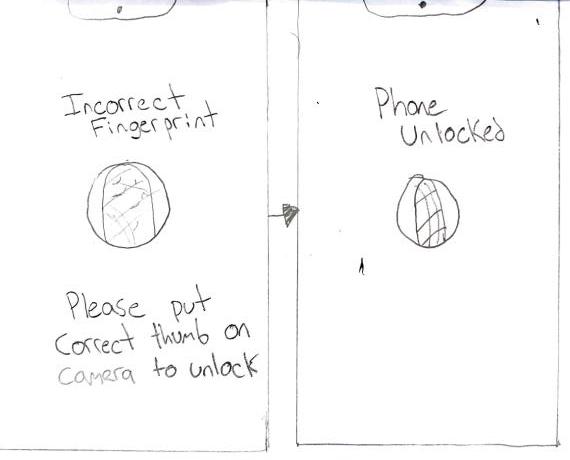 Incorrect
Fingerprint
Please put
Correct thumb on
camera to unlock
Phone
Unlocked